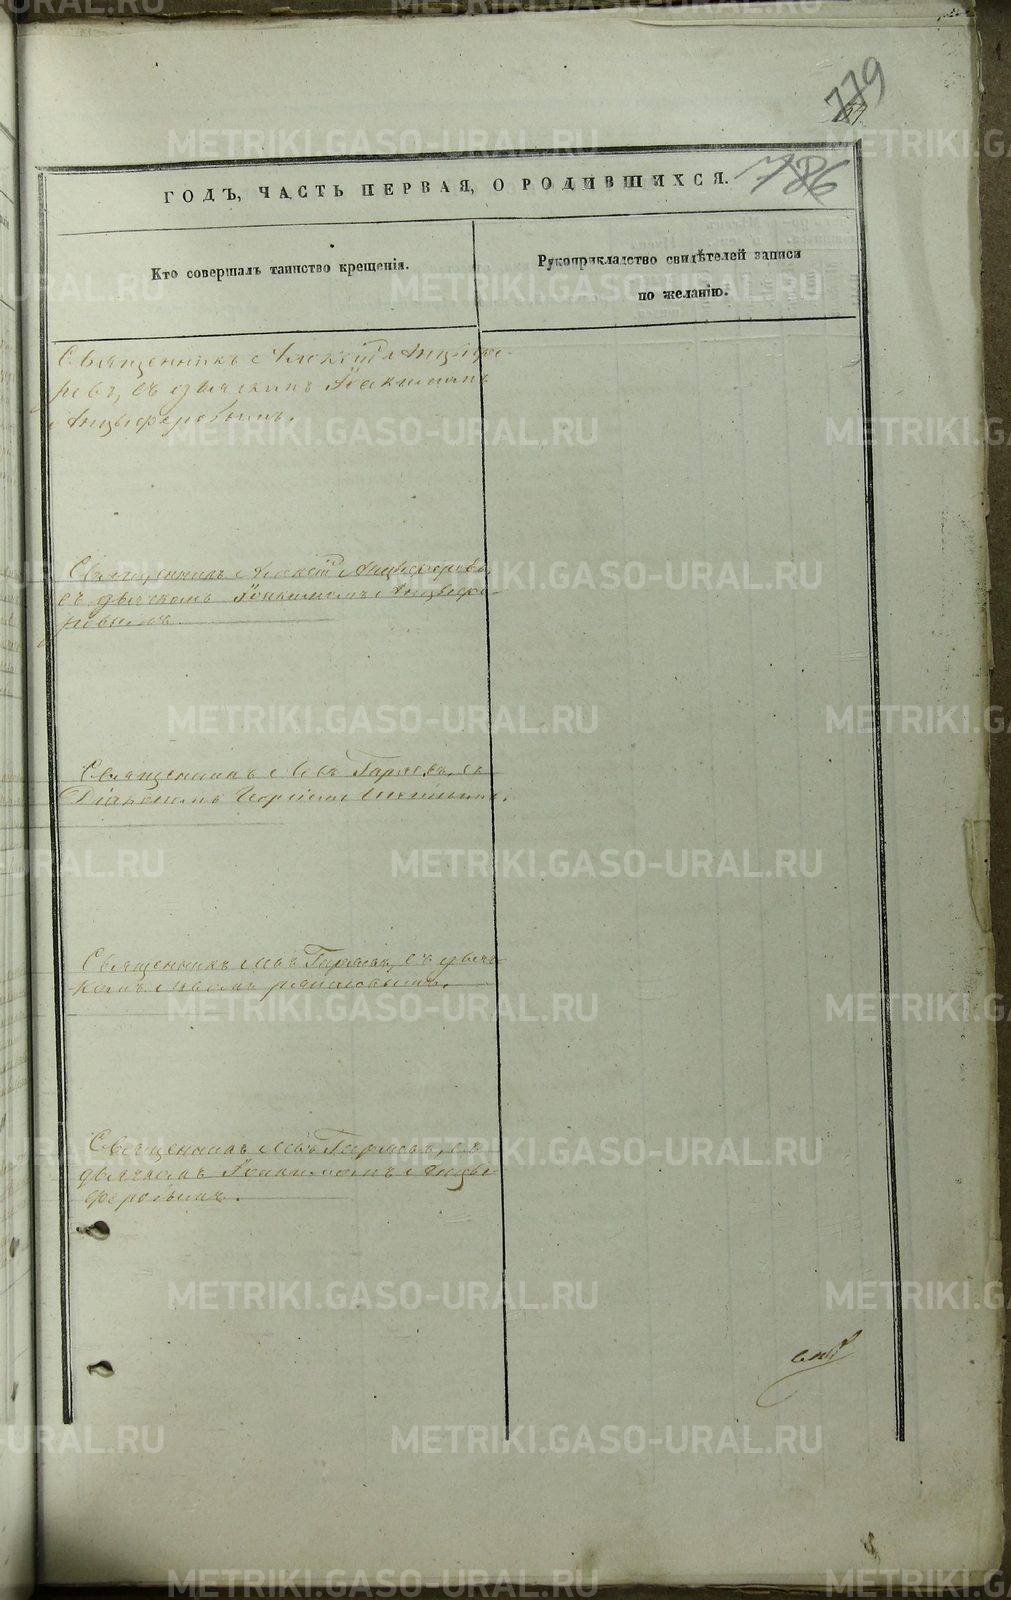 779
786
ГОДЪ, ЧАСТЬ ПЕРВАЯ, О РОДИВШИХСЯ.
Кто совершалъ таинство крещенія.
Рукоприкладство свидѣтелей записи
по желанію.
Священникъ Алексій Анцыфе-
ровъ, съ дьячкомъ Іоакимомъ
Анцыферовымъ.
Священникъ Алексій Анцыферовъ,
съ дьячкомъ Іоакимомъ Анцыфе-
ровымъ.
Священникъ Левъ Гаряевъ, съ
Діакономъ
Священникъ Левъ Гаряевъ, съ дьяч-
комъ
Священникъ Левъ Гаряевъ, съ
дьячкомъ Іоакимомъ Анцы-
феровымъ.
METRIKI.GASO-URAL.RU